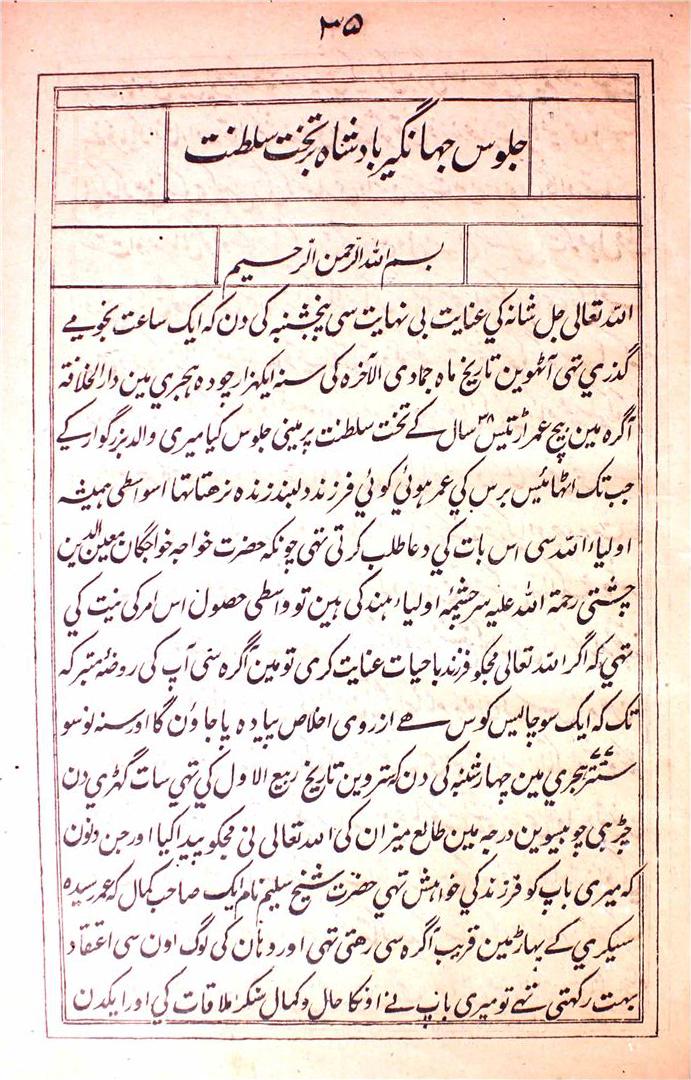 ۳۵
جلوس جهانگیر بادشاه بر تخت سلطنت
بسم الله الرحمن الرحیم
الله تعالی جل شانه کي عنایت بی نهایت سی پنجشنبه کی دن که ایک ساعت نجومے
گذري تهی آٹهوین تاریخ ماه جمادی الآخره کی سنه ایکهزار چوده هجری مین دارالخلافة
آگره مین بیچ عمر اڑتیس۳۸ سال کے تخت سلطنت پر مینی جلوس کیا میری والد بزرگوار کے
جب تک اٹهائیس برس کي عمر هوئي کوئي فرزند دلبند زنده نرهتا تها اسواسطی همیشه
اولیاء الله سی اس بات کي دعا طلب کرتی تهی چونکه حضرت خواجه خواجگان معین الدین
چشتی رحمة الله علیه سرچشمهٔ اولیاء هند کی هین تو واسطی حصول اس امر کی نیت کي
تهي که اگر الله تعالی مجکو فرزند باحیات عنایت کری تو مین آگره سی آپ کی روضهٔ متبرکه
تک که ایک سو چالیس کوس هے از روی اخلاص پیاده پا جاؤن گا اور سنه نو سو
ستتر۷۷ هجري مین چهارشنبه کی دن که ستروین تاریخ ربیع الاول کي تهی سات گهڑی دن
چڑهی چوبیسوین درجه مین طالع میزان کی الله تعالی نی مجکو پیدا کیا اور جن دنون
که میری باپ کو فرزند کي خواهش تهي حضرت شیخ سلیم نام ایک صاحب کمال که عمر رسیده
سیکري کے پهاڑ مین قریب آگره سی رهتی تهی اور وهان کی لوگ اون سی اعتقاد
بهت رکهتی تهے تو میری باپ نے اونکا حال و کمال سنکر ملاقات کي اور ایکدن